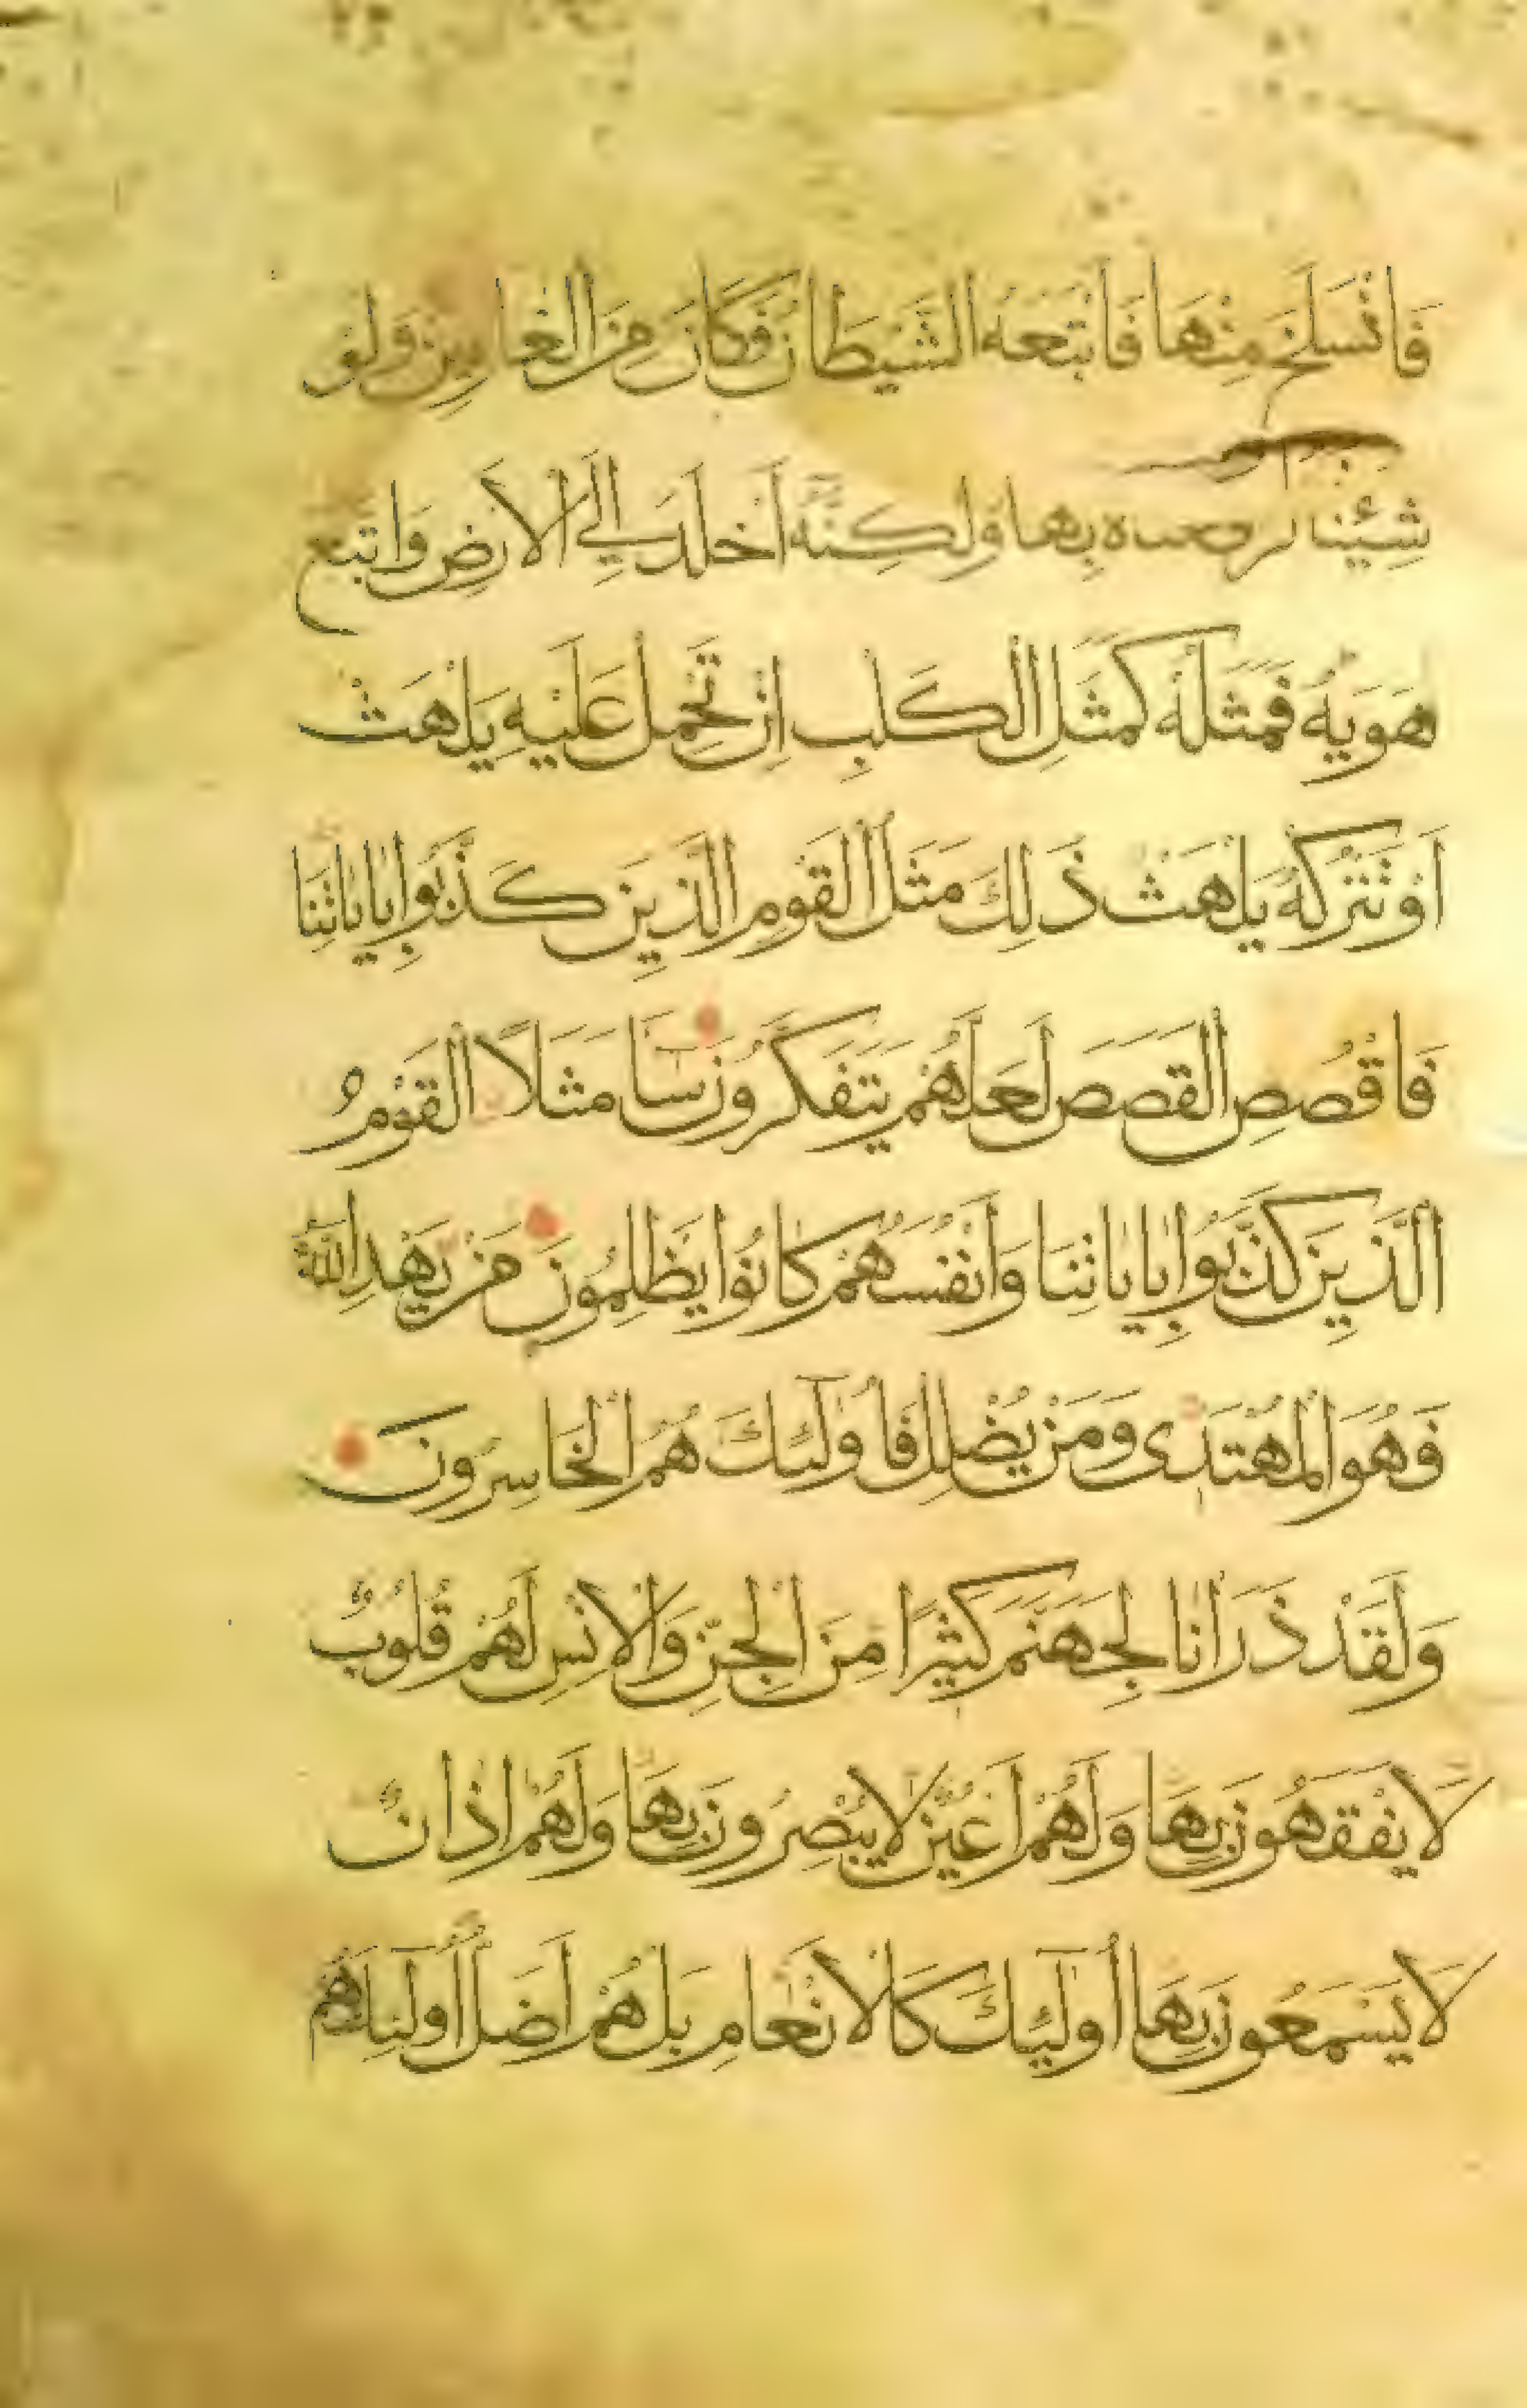 فَانْسَلَخَ مِنْهَا فَاَتْبَعَهُ الشَّيْطَانُ فَكَانَ مِنَ الْغَاوِينَ وَلَوْ
شِئْنَا لرفعناه بِهَا وَلَكِنَّهُ اَخْلَدَ اِلَى الْاَرْضِ وَاتَّبَعَ
هَوَيهُ فَمَثَلُهُ كَمَثَلِ الْكَلْبِ اِنْ تَحْمِلْ عَلَيْهِ يَلْهَثْ
اَوْ تَتْرُكْهُ يَلْهَثْ ذَلِكَ مَثَلُ الْقَوْمِ الَّذِينَ كَذَّبُوا بِاَيَاتِنَا
فَاقْصُصِ الْقَصَصَ لَعَلَّهُمْ يَتَفَكَّرُونَ سَاۤءَ مَثَلًا الْقَوْمُ
الَّذِينَ كَذَّبُوا بِاَيَاتِنَا وَاَنْفُسَهُمْ كَانُوا يَظْلِمُونَ مَنْ يَهْدِ اللّٰهُ
فَهُوَ الْمُهْتَدِى وَمَنْ يُضْلِلْ فَاُولٰۤئِكَ هُمُ الْخَاسِرُونَ
وَلَقَدْ ذَرَاْنَا لِجَهَنَّمَ كَثِيرًا مِنَ الْجِنِّ وَالْاِنْسِ لَهُمْ قُلُوبٌ
لَا يَفْقَهُونَ بِهَا وَلَهُمْ اَعْيُنٌ لَا يُبْصِرُونَ بِهَا وَلَهُمْ اٰذَانٌ
لَا يَسْمَعُونَ بِهَا اُولٰۤئِكَ كَالْاَنْعَامِ بَلْ هُمْ اَضَلُّ اُولٰۤئِكَ هُمُ